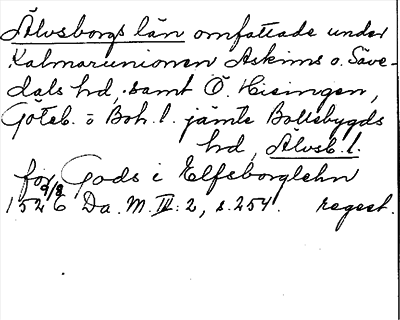 Älvsborgs län omfattade under
Kalmarunionen Askims o. Säve-
dals hd, samt Ö. Hisingen,
Göteb. o Boh. l. jämte Bollebygds
hd, Älvsb. l.
for Gods i Elfsborglehn
9/3
1526 Da. M. IV: 2, s. 254. regest.